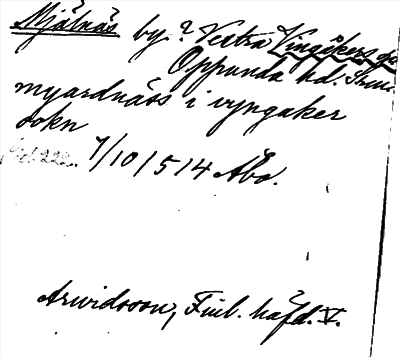 Mjälnäs by? Vestra Vingåkers sn
Oppunda hd. Srm.
myardnäss i vyngaker
sokn
7/10 1514 Åbo.
Arwidsson, Finl. häfd. V.